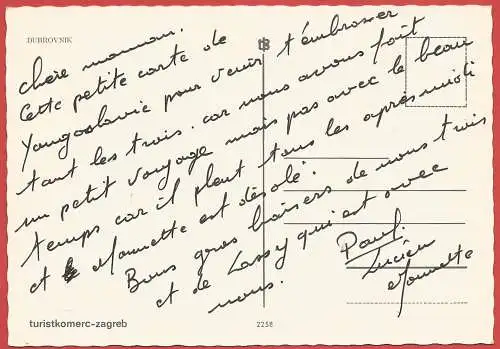 DUBROVNIK
chère maman.
Cette petite carte de
Yougoslavie pour venir t'embrasser
tout les trois. car nous avons fait
un petit voyage mais pas avec le beau
temps car il pleut tous les après midi
et Nounette est désolé.
Bons gros baisers de nous trois
et de Lassy qui est avec
nous.
Paul.
Lucien
Nounette
turistkomerc-zagreb
2258